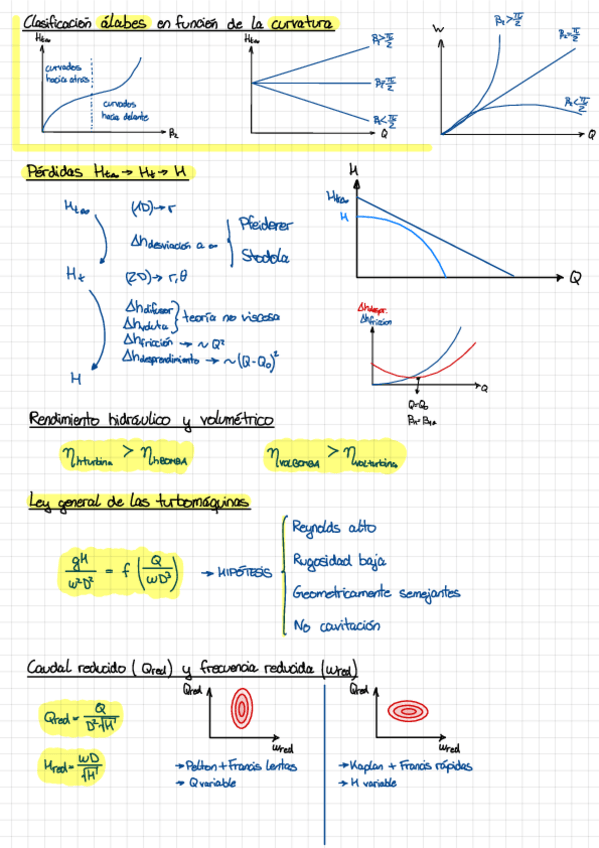 Clasificación álabes en función de la curvatura
Ht∞
curvados
hacia atras
curvados
hacia delante
β2
Ht∞
β2>π/2
β2=π/2
β2<π/2
Q
W
β2>π/2
β2=π/2
β2<π/2
Q
Pérdidas Ht∞ → Ht → H
Ht∞
(1D) → r
Δhdesviación a ∞
Pfeiderer
Stodola
Ht
(2D) → r,θ
Δhdifusor
Δhvoluta
teoría no viscosa
Δhfricción → ~ Q²
Δhdesprendimiento → ~ (Q-Q0)²
H
H
Ht∞
H
Q
Δhdespr.
Δhfricion
Q
Q=Q0
Rendimiento hidráulico y volumétrico
ηhturbina > ηhBOMBA
ηVOLBOMBA > ηvolturbina
Ley general de las turbomáquinas
gH/ω²D² = f (Q/ωD³)
→ HIPÓTESIS
Reynolds alto
Rugosidad baja
Geometricamente semejantes
No cavitación
Caudal reducido (Qred) y frecuencia reducida (ωred)
Qred = Q/D²√H
Hred = ωD/√H
Qred
ωred
→ Pelton + Francis lentas
→ Q variable
Qred
ωred
→ Kaplan + Francis rápidas
→ H variable